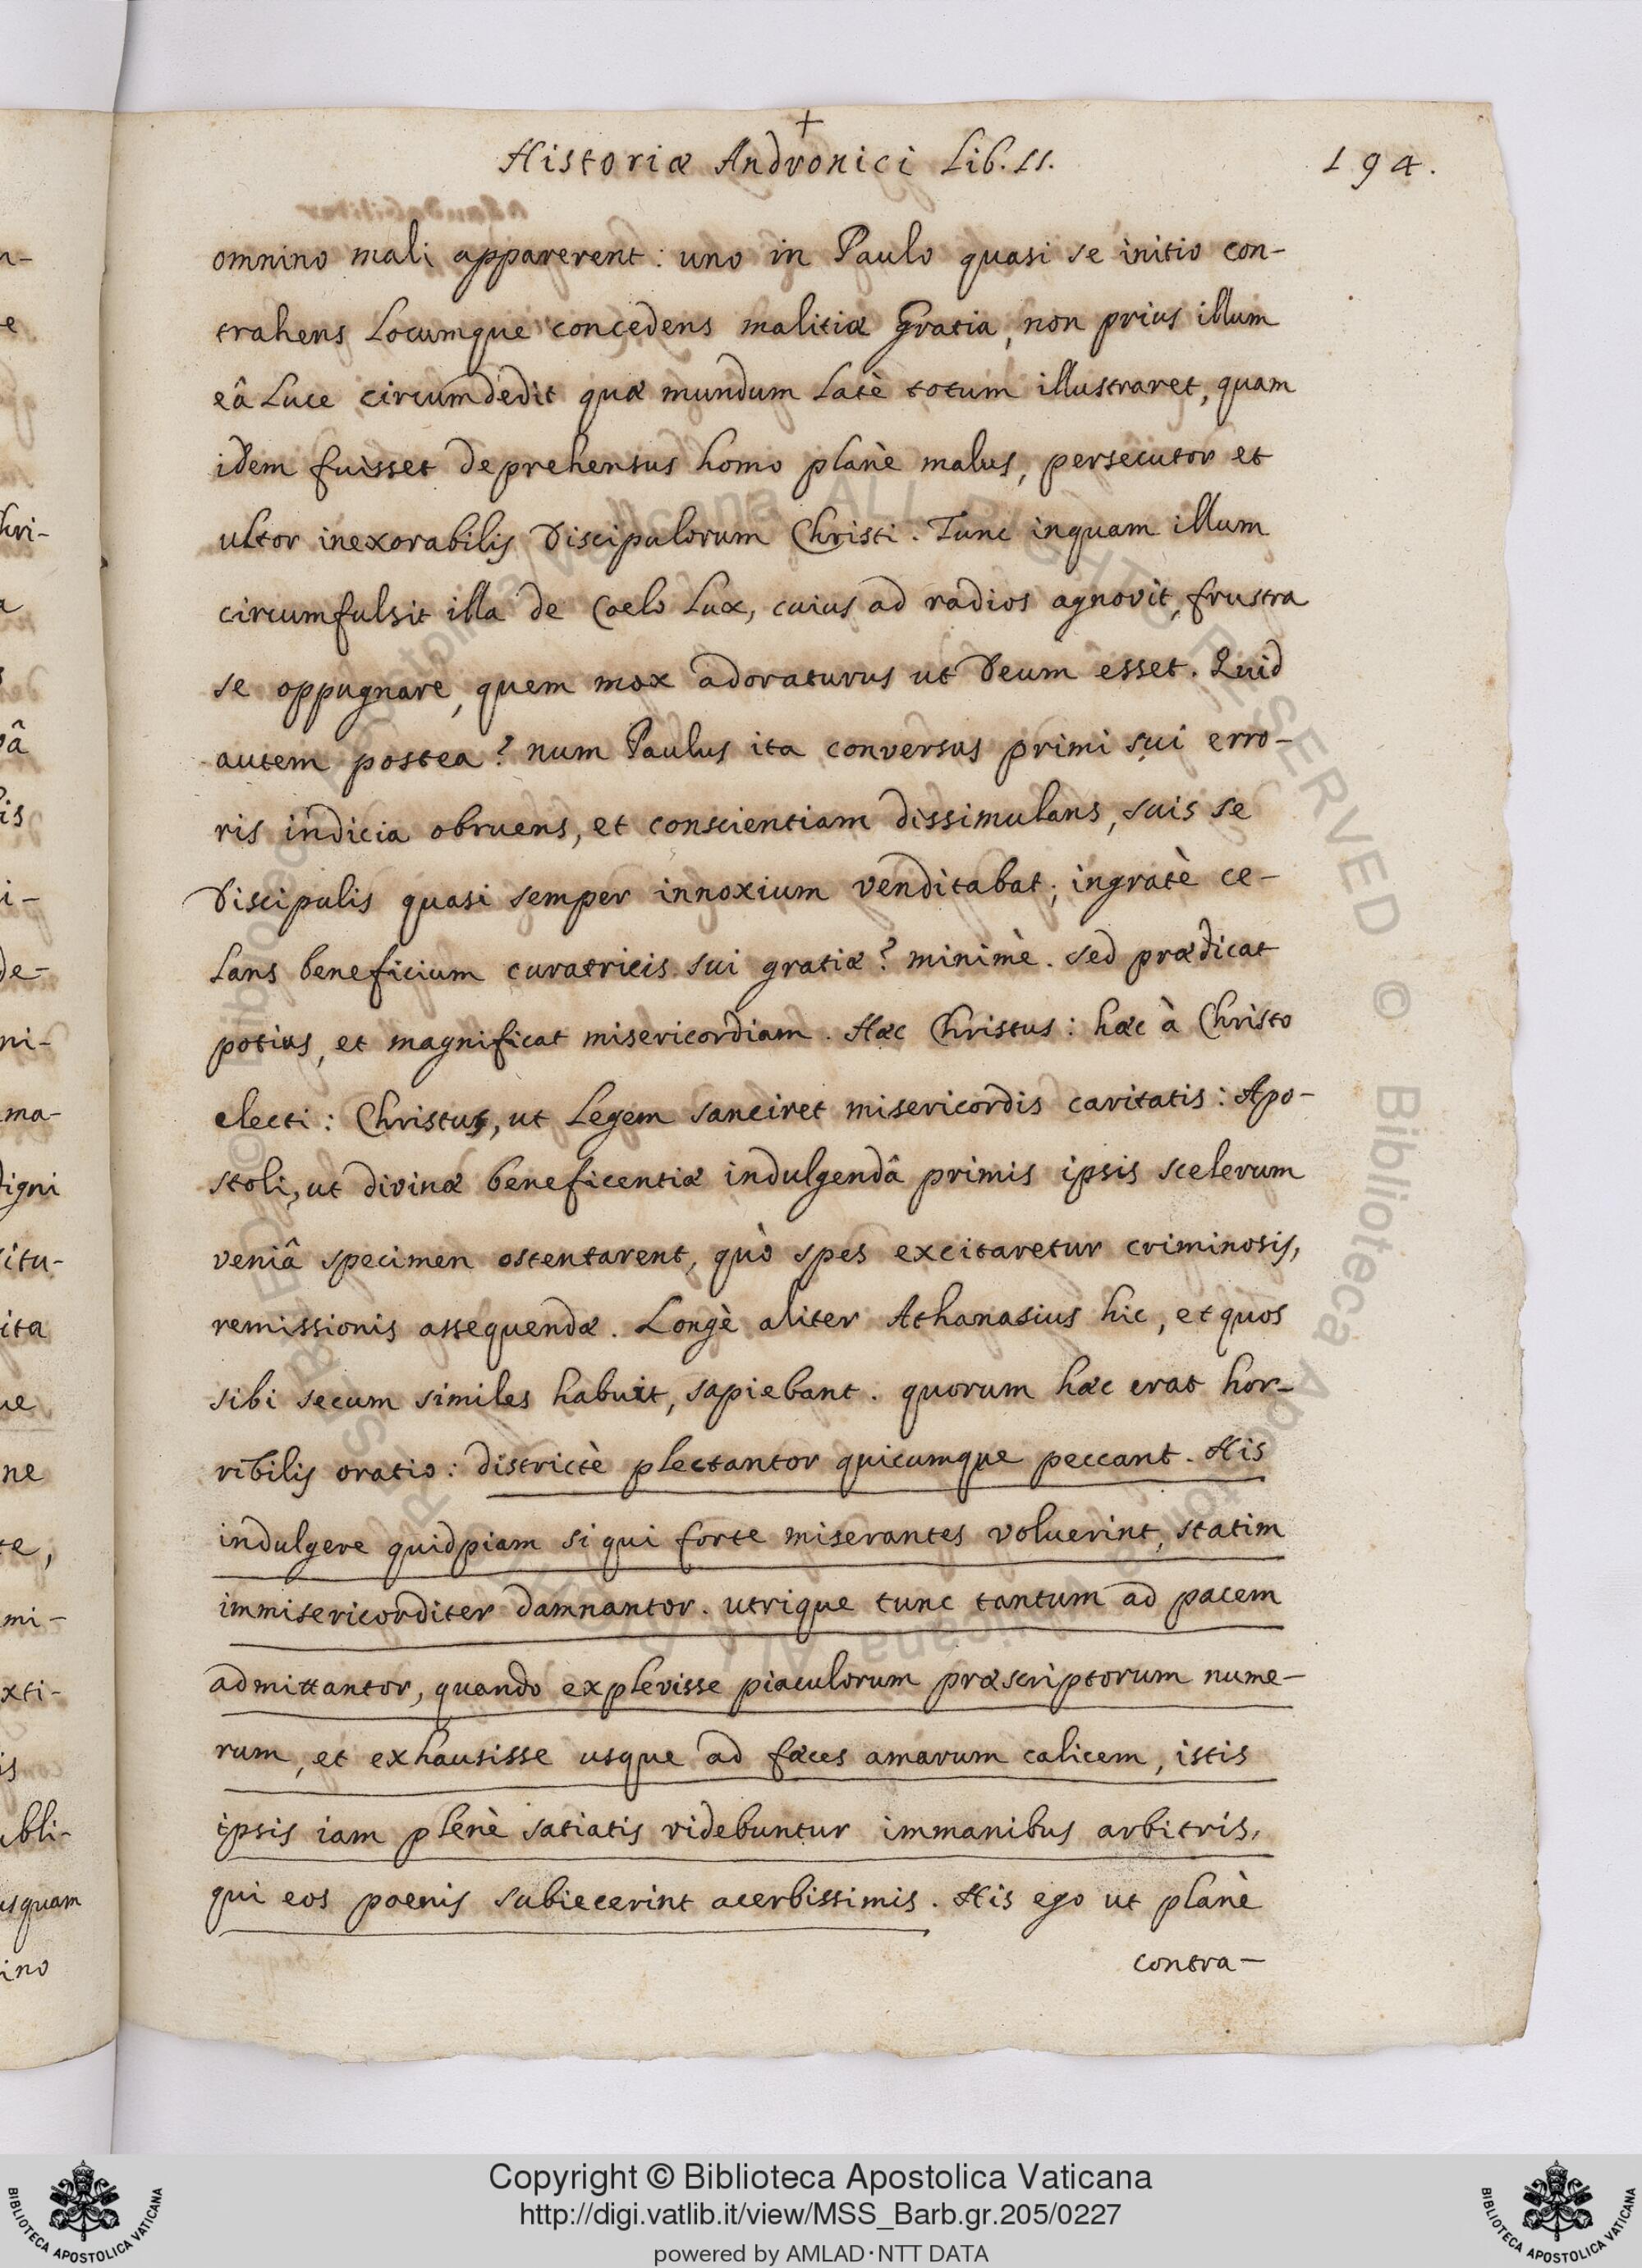 +
Historiæ Andronici Lib. II.
194.
omnino mali apparerent: uno in Paulo quasi se initio con-
trahens Locumque concedens malitiæ Gratia, non prius illum
eâ Luce circumdedit quæ mundum Latè totum illustraret, quam
idem fuisset deprehensus homo planè malus, persecutor et
ultor inexorabilis Discipulorum Christi. Tunc inquam illum
circumfulsit illa de Coelo Lux, cuius ad radios agnovit, frustra
se oppugnare, quem mox adoraturus ut Deum esset. Quid
autem postea? num Paulus ita conversus primi sui erro-
ris indicia obruens, et conscientiam dissimulans, suis se
Discipulis quasi semper innoxium venditabat; ingratè ce-
Lans beneficium curatricis sui gratiæ? minimè. sed prædicat
potius, et magnificat misericordiam. Hæc Christus: hæc à Christo
electi: Christus, ut Legem sanciret misericordis caritatis: Apo-
stoli, ut divinæ beneficentiæ indulgendâ primis ipsis scelerum
veniâ specimen ostentarent, quò spes excitaretur criminosis,
remissionis assequendæ. Longè aliter Athanasius hic, et quos
sibi secum similes habuit, sapiebant. quorum hæc erat hor-
ribilis oratio: districtè plectantor quicumque peccant. His
indulgere quidpiam si qui forte miserantes voluerint, statim
immisericorditer damnantor. utrique tunc tantum ad pacem
admittantor, quando explevisse piaculorum præscriptorum nume-
rum, et exhausisse usque ad fæces amarum calicem, istis
ipsis iam plenè satiatis videbuntur immanibus arbitris,
qui eos poenis subiecerint acerbissimis. His ego ut planè
contra-
Copyright © Biblioteca Apostolica Vaticana
http://digi.vatlib.it/view/MSS_Barb.gr.205/0227
powered by AMLAD·NTT DATA
BIBLIOTECA APOSTOLICA VATICANA
BIBLIOTECA APOSTOLICA VATICANA